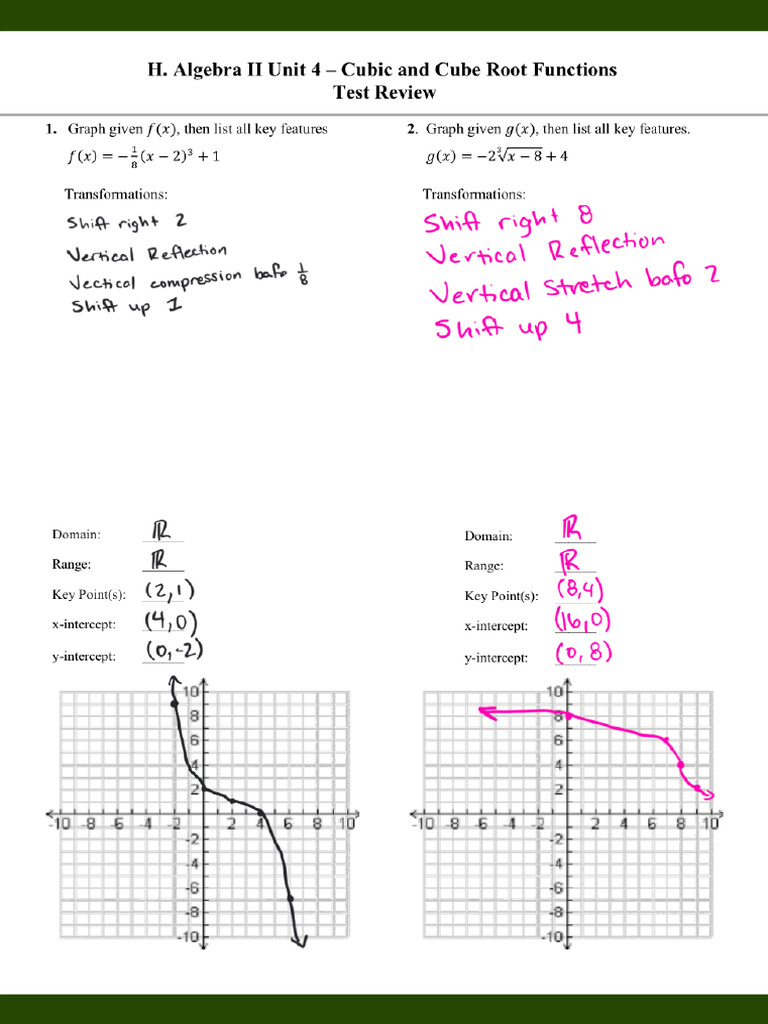 H. Algebra II Unit 4 – Cubic and Cube Root Functions
Test Review
1. Graph given f(x), then list all key features
f(x) = −1/8(x − 2)³ + 1
Transformations:
Shift right 2
Vertical Reflection
Vectical compression bafo 1/8
Shift up 1
Domain: ℝ
Range: ℝ
Key Point(s): (2,1)
x-intercept: (4,0)
y-intercept: (0,-2)
10
8
6
4
2
-10 -8 -6 -4 -2 2 4 6 8 10
-2
-4
-6
-8
-10
2. Graph given g(x), then list all key features.
g(x) = −2∛(x − 8) + 4
Transformations:
Shift right 8
Vertical Reflection
Vertical Stretch bafo 2
Shift up 4
Domain: ℝ
Range: ℝ
Key Point(s): (8,4)
x-intercept: (16,0)
y-intercept: (0,8)
10
8
6
4
2
-10 -8 -6 -4 -2 2 4 6 8 10
-2
-4
-6
-8
-10